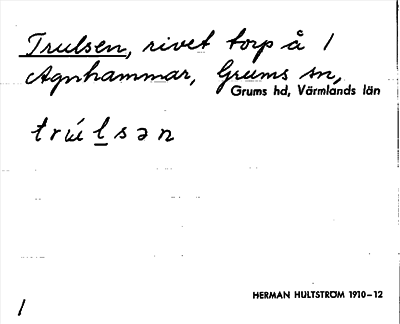 Trulsen, rivet torp å 1
Agnhammar, Grums sn,
Grums hd, Värmlands län
trúlsən
HERMAN HULTSTRÖM 1910–12
1